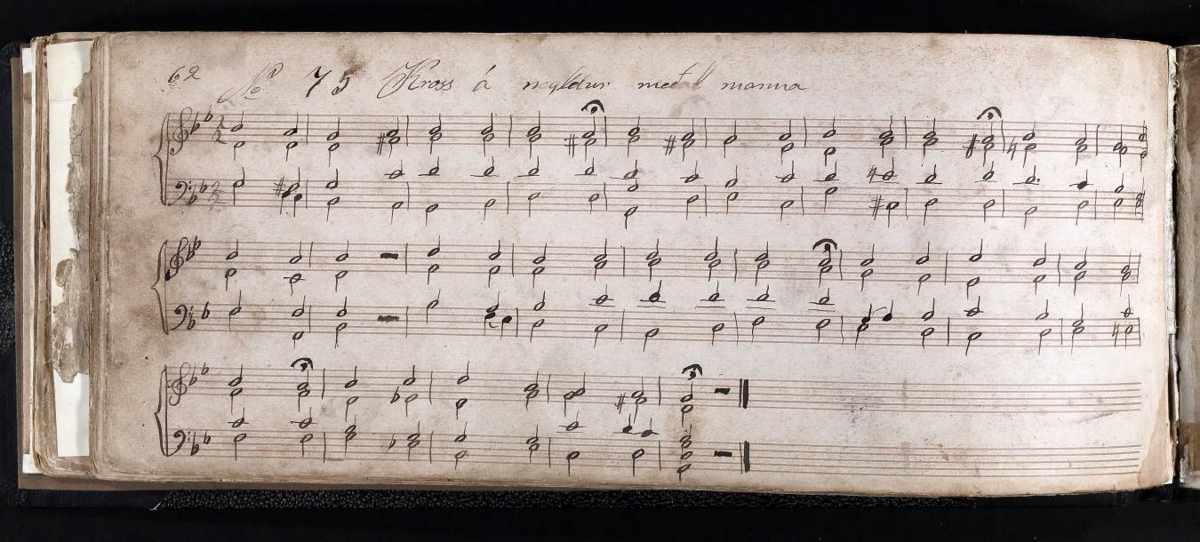 62 No 75 Kross á negldur með ll manna